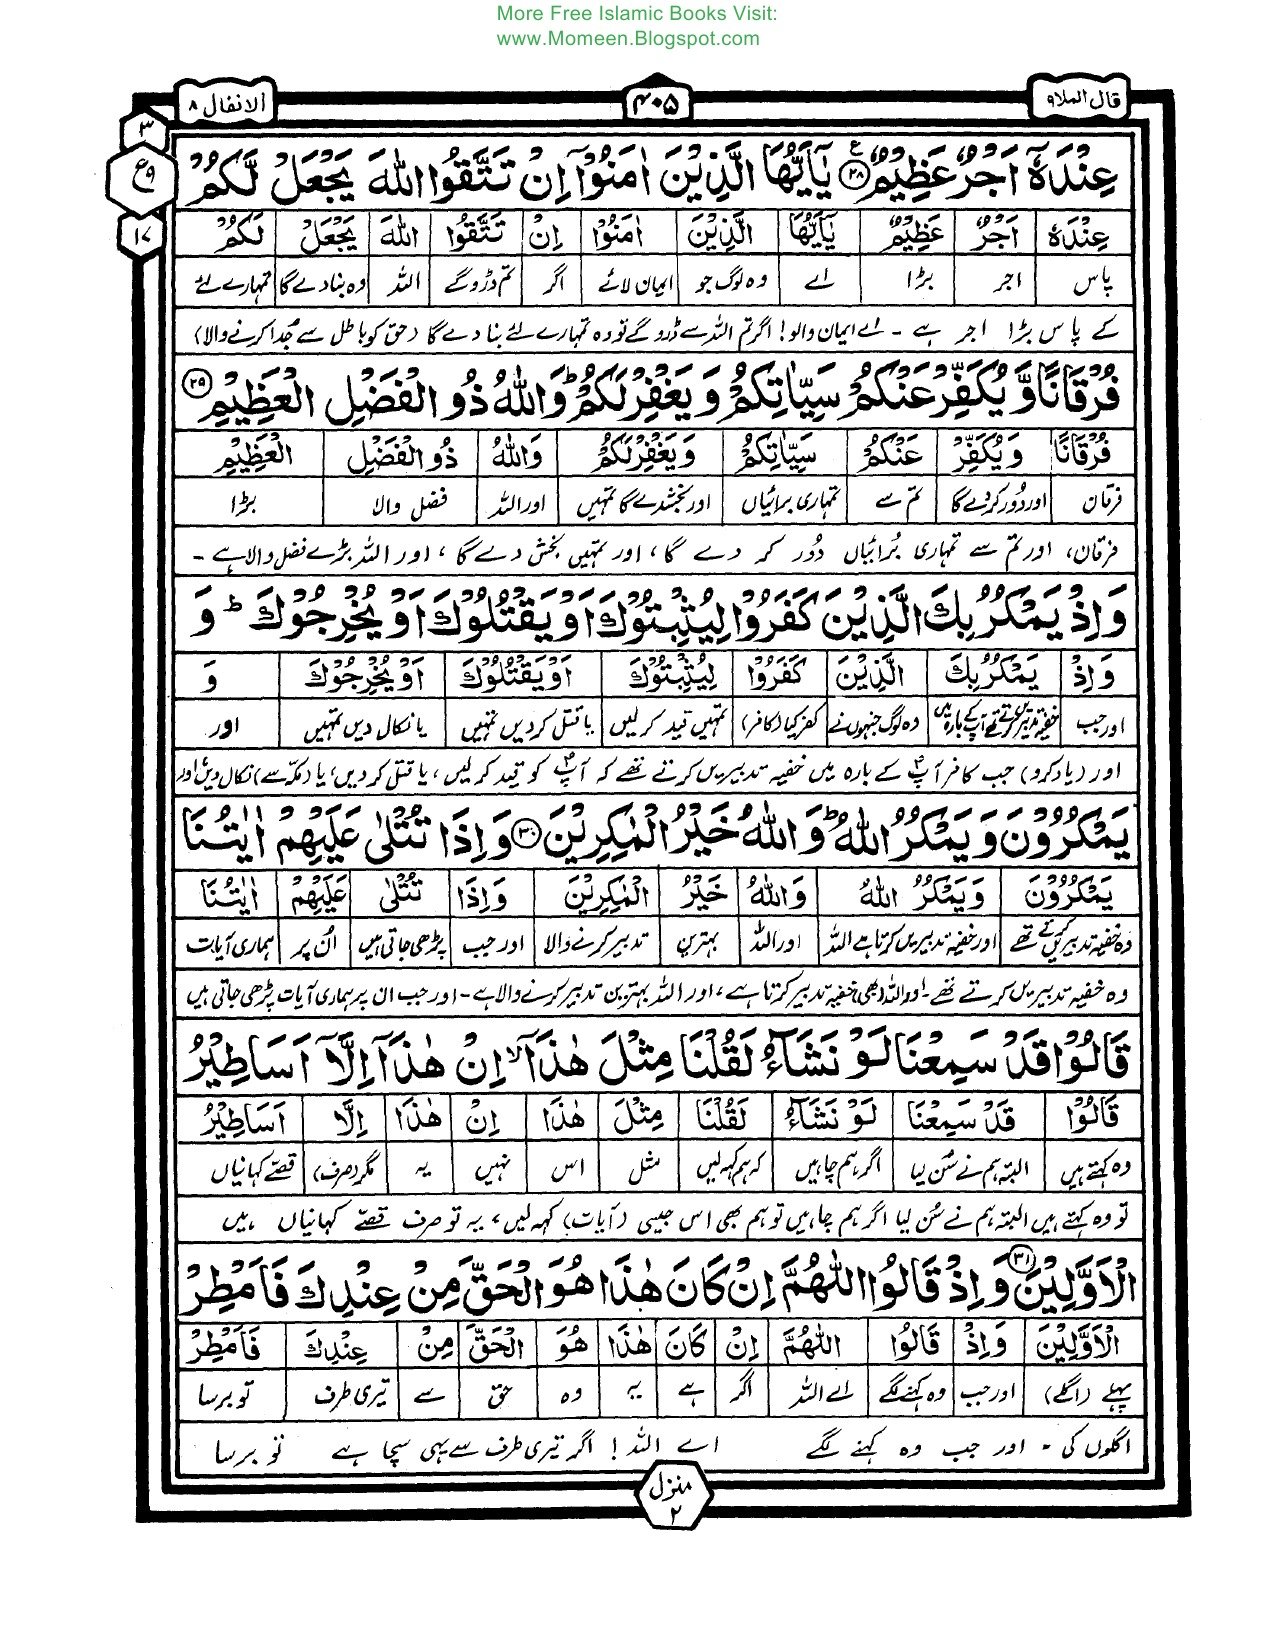 More Free Islamic Books Visit:
www.Momeen.Blogspot.com
قال الملا ٩
۴۰۵
الانفال ٨
٣
ع ٩
١٧
عِنْدَهٗۤ اَجْرٌ عَظِيْمٌ ۲۸ يٰۤاَيُّهَا الَّذِيْنَ اٰمَنُوْۤا اِنْ تَتَّقُوا اللّٰهَ يَجْعَلْ لَّكُمْ
عِنْدَهٗ اَجْرٌ عَظِيْمٌ يٰۤاَيُّهَا الَّذِيْنَ اٰمَنُوْا اِنْ تَتَّقُوْا اللّٰهَ يَجْعَلْ لَكُمْ
پاس اجر بڑا اے وہ لوگ جو ایمان لائے اگر تم ڈرو گے اللہ وہ بنادے گا تمہارے لئے
کے پاس بڑا اجر ہے ۔ اے ایمان والو! اگر تم اللہ سے ڈرو گے تو وہ تمہارے لئے بنا دے گا (حق کو باطل سے جُدا کرنے والا)
فُرْقَانًا وَّيُكَفِّرْ عَنْكُمْ سَيِّاٰتِكُمْ وَيَغْفِرْ لَكُمْ ؕ وَاللّٰهُ ذُو الْفَضْلِ الْعَظِيْمِ ۲۹
فُرْقَانًا وَيُكَفِّرْ عَنْكُمْ سَيِّاٰتِكُمْ وَيَغْفِرْلَكُمْ وَاللّٰهُ ذُو الْفَضْلِ الْعَظِيْمِ
فرقان اور دُور کردے گا تم سے تمہاری برائیاں اور بخشدے گا تمہیں اور اللہ فضل والا بڑا
فرقان، اور تم سے تمہاری بُرائیاں دُور کر دے گا، اور تمہیں بخش دے گا، اور اللہ بڑے فضل والا ہے ۔
وَاِذْ يَمْكُرُ بِكَ الَّذِيْنَ كَفَرُوْا لِيُثْبِتُوْكَ اَوْ يَقْتُلُوْكَ اَوْ يُخْرِجُوْكَ ؕ وَ
وَاِذْ يَمْكُرُ بِكَ الَّذِيْنَ كَفَرُوْا لِيُثْبِتُوْكَ اَوْيَقْتُلُوْكَ اَوْيُخْرِجُوْكَ وَ
اور جب خفیہ تدبیریں کرتے تھے آپ کے بارہ میں وہ لوگ جنہوں نے کفر کیا (کافر) تمہیں قید کر لیں یا قتل کر دیں تمہیں یا نکال دیں تمہیں اور
اور (یاد کرو) جب کافر آپؐ کے بارہ میں خفیہ تدبیریں کرتے تھے کہ آپؐ کو قید کر لیں، یا قتل کر دیں، یا (مکہ سے) نکال دیں، اور
يَمْكُرُوْنَ وَيَمْكُرُ اللّٰهُ ؕ وَاللّٰهُ خَيْرُ الْمٰكِرِيْنَ ۳۰ وَاِذَا تُتْلٰى عَلَيْهِمْ اٰيٰتُنَا
يَمْكُرُوْنَ وَيَمْكُرُ اللّٰهُ وَاللّٰهُ خَيْرُ الْمٰكِرِيْنَ وَاِذَا تُتْلٰى عَلَيْهِمْ اٰيٰتُنَا
وہ خفیہ تدبیریں کرتے تھے اور خفیہ تدبیریں کرتا ہے اللہ اور اللہ بہترین تدبیر کرنے والا اور جب پڑھی جاتی ہیں اُن پر ہماری آیات
وہ خفیہ تدبیریں کرتے تھے ۔ اور اللہ (بھی) خفیہ تدبیر کرتا ہے، اور اللہ بہترین تدبیر کرنے والا ہے ۔ اور جب ان پر ہماری آیات پڑھی جاتی ہیں
قَالُوْا قَدْ سَمِعْنَا لَوْ نَشَآءُ لَقُلْنَا مِثْلَ هٰذَاۤ ۙ اِنْ هٰذَاۤ اِلَّاۤ اَسَاطِيْرُ
قَالُوْا قَدْ سَمِعْنَا لَوْ نَشَآءُ لَقُلْنَا مِثْلَ هٰذَا اِنْ هٰذَا اِلَّا اَسَاطِيْرُ
وہ کہتے ہیں البتہ ہم نے سُن لیا اگر ہم چاہیں کہ ہم کہہ لیں مثل اس نہیں یہ مگر (صرف) قصے کہانیاں
تو وہ کہتے ہیں البتہ ہم نے سُن لیا اگر ہم چاہیں تو ہم بھی اس جیسی (آیات) کہہ لیں، یہ تو صرف قصے کہانیاں ہیں
الْاَوَّلِيْنَ ۳۱ وَاِذْ قَالُوا اللّٰهُمَّ اِنْ كَانَ هٰذَا هُوَ الْحَقَّ مِنْ عِنْدِكَ فَاَمْطِرْ
الْاَوَّلِيْنَ وَاِذْ قَالُوْا اللّٰهُمَّ اِنْ كَانَ هٰذَا هُوَ الْحَقَّ مِنْ عِنْدِكَ فَاَمْطِرْ
پہلے (اگلے) اور جب وہ کہنے لگے اے اللہ اگر ہے یہ وہ حق سے تیری طرف تو برسا
اگلوں کی ۔ اور جب وہ کہنے لگے اے اللہ! اگر تیری طرف سے یہی سچا ہے تو برسا
منزل ۲